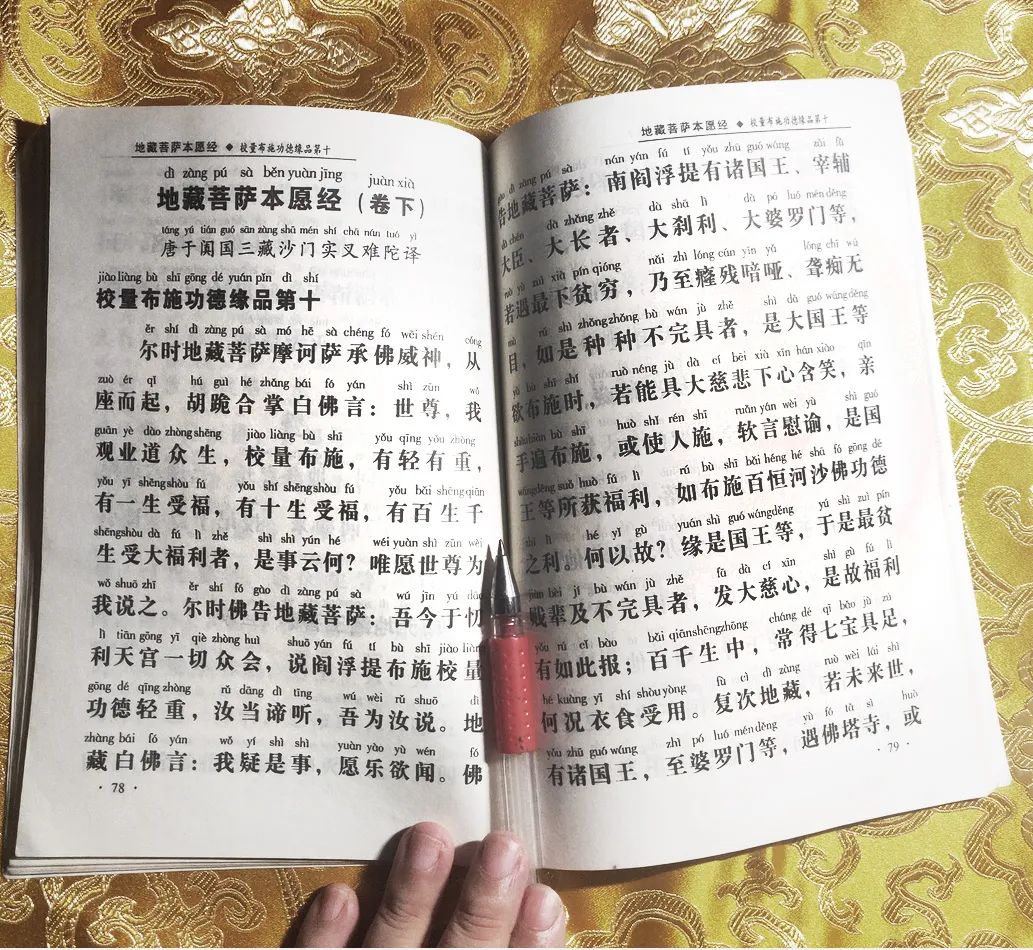 地藏菩萨本愿经 ◆ 校量布施功德缘品第十
dì zàng pú sà běn yuàn jīng juàn xià
地藏菩萨本愿经（卷下）
táng yú tián guó sān zàng shā mén shí chā nán tuó yì
唐于阗国三藏沙门实叉难陀译
jiào liàng bù shī gōng dé yuán pǐn dì shí
校量布施功德缘品第十
ěr shí dì zàng pú sà mó hē sà chéng fó wēi shén cóng
尔时地藏菩萨摩诃萨承佛威神，从
zuò ér qǐ hú guì hé zhǎng bái fó yán shì zūn wǒ
座而起，胡跪合掌白佛言：世尊，我
guān yè dào zhòng shēng jiào liàng bù shī yǒu qīng yǒu zhòng
观业道众生，校量布施，有轻有重，
yǒu yī shēng shòu fú yǒu shí shēng shòu fú yǒu bǎi shēng qiān
有一生受福，有十生受福，有百生千
shēng shòu dà fú lì zhě shì shì yún hé wéi yuàn shì zūn wèi
生受大福利者，是事云何？唯愿世尊为
wǒ shuō zhī ěr shí fó gào dì zàng pú sà wú jīn yú dāo
我说之。尔时佛告地藏菩萨：吾今于忉
lì tiān gōng yī qiè zhòng huì shuō yán fú tí bù shī jiào liàng
利天宫一切众会，说阎浮提布施校量
gōng dé qīng zhòng rǔ dāng dì tīng wú wèi rǔ shuō dì
功德轻重，汝当谛听，吾为汝说。地
zhàng bái fó yán wǒ yí shì shì yuàn yào yù wén fó
藏白佛言：我疑是事，愿乐欲闻。佛
· 78 ·
地藏菩萨本愿经 ◆ 校量布施功德缘品第十
dì zàng pú sà nán yán fú tí yǒu zhū guó wáng zǎi fǔ
告地藏菩萨：南阎浮提有诸国王、宰辅
dà chén dà zhǎng zhě dà shā lì dà pó luó mén děng
大臣、大长者、大刹利、大婆罗门等，
ruò yù zuì xià pín qióng nǎi zhì lóng cán yīn yǎ lóng chī wú
若遇最下贫穷，乃至癃残喑哑、聋痴无
mù rú shì zhǒng zhǒng bù wán jù zhě shì dà guó wáng děng
目，如是种种不完具者，是大国王等
yù bù shī shí ruò néng jù dà cí bēi xià xīn hán xiào qīn
欲布施时，若能具大慈悲下心含笑，亲
shǒu biàn bù shī huò shǐ rén shī ruǎn yán wèi yù shì guó
手遍布施，或使人施，软言慰谕，是国
wáng děng suǒ huò fú lì rú bù shī bǎi héng hé shā fó gōng dé
王等所获福利，如布施百恒河沙佛功德
zhī lì hé yǐ gù yuán shì guó wáng děng yú shì zuì pín
之利。何以故？缘是国王等，于是最贫
jiàn bèi jí bù wán jù zhě fā dà cí xīn shì gù fú lì
贱辈及不完具者，发大慈心，是故福利
yǒu rú cǐ bào bǎi qiān shēng zhōng cháng dé qī bǎo jù zú
有如此报；百千生中，常得七宝具足，
hé kuàng yī shí shòu yòng fù cì dì zàng ruò wèi lái shì
何况衣食受用。复次地藏，若未来世，
yǒu zhū guó wáng zhì pó luó mén děng yù fó tǎ sì huò
有诸国王，至婆罗门等，遇佛塔寺，或
· 79 ·